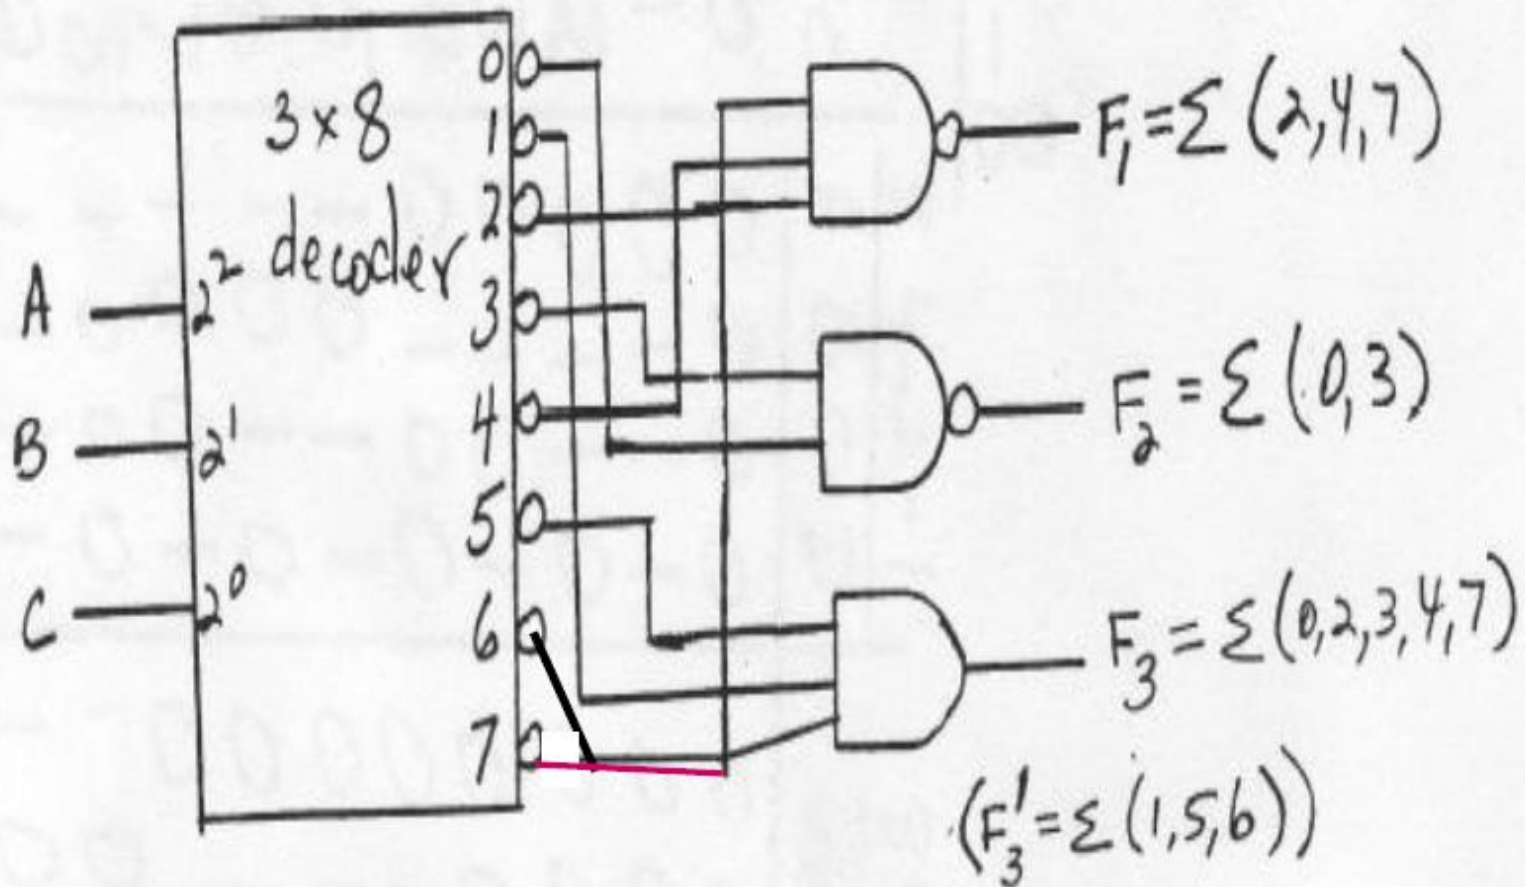 3x8
decoder
A 2²
B 2¹
C 2⁰
0
1
2
3
4
5
6
7
F₁ = Σ (2,4,7)
F₂ = Σ (0,3)
F₃ = Σ (0,2,3,4,7)
(F₃' = Σ (1,5,6))